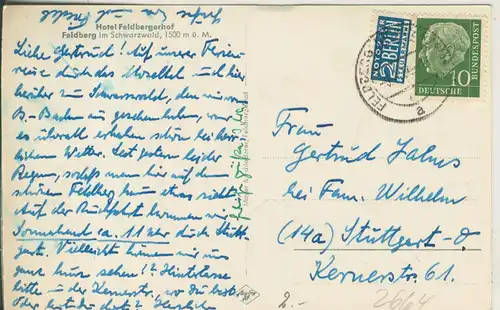 Hotel Feldbergerhof
Feldberg im Schwarzwald, 1500 m ü. M.
Liebe Gertrud! Auf unserer Ferien-
reise durch das Moseltal und hier-
herüber zum Schwarzwald, den wir von
B.-Baden aus gesehen haben, war
es überall erhaben schön bei herr-
lichem Wetter. Seit gestern leider
Regen, sodaß man hier auf dem
schönen Feldberg kaum etwas sieht.
Auf der Rückfahrt kommen wir
Sonnabend ca. 11 Uhr durch Stutt-
gart. Vielleicht können wir uns
ganz kurz sehen!? Hinterlasse
bitte in der Kernerstr., wo Du bist
oder
Herzlichen
NOTOPFER
2 BERLIN
STEUERMARKE
DEUTSCHE
BUNDESPOST
10
FELDBERG
a
Frau
Gertrud
bei Fam. Wilhelm
(14a) Stuttgart-O
Kernerstr. 61.
2.-